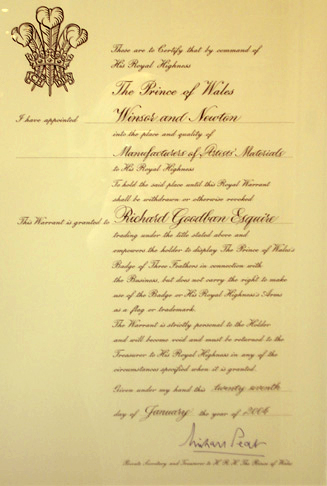 These are to Certify that by command of
His Royal Highness
The Prince of Wales
I have appointed Winsor and Newton
into the place and quality of
Manufacturers of Artists' Materials
to His Royal Highness
To hold the said place until this Royal Warrant
shall be withdrawn or otherwise revoked
This Warrant is granted to Richard Goodban Esquire
trading under the title stated above and
empowers the holder to display The Prince of Wales's
Badge of Three Feathers in connection with
the Business, but does not carry the right to make
use of the Badge or His Royal Highness's Arms
as a flag or trademark.
The Warrant is strictly personal to the Holder
and will become void and must be returned to the
Treasurer to His Royal Highness in any of the
circumstances specified when it is granted.
Given under my hand this twenty seventh
day of January the year of 2006
Michael Peat
Private Secretary and Treasurer to H R H The Prince of Wales